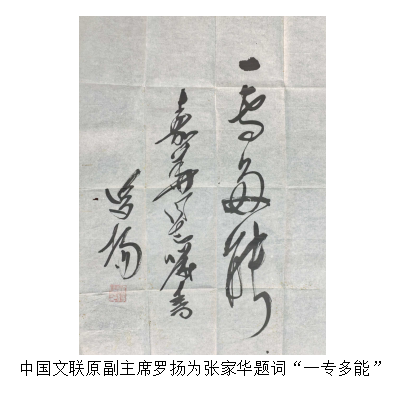 一专多能
嘉华同志嘱书
罗扬
中国文联原副主席罗扬为张家华题词“一专多能”